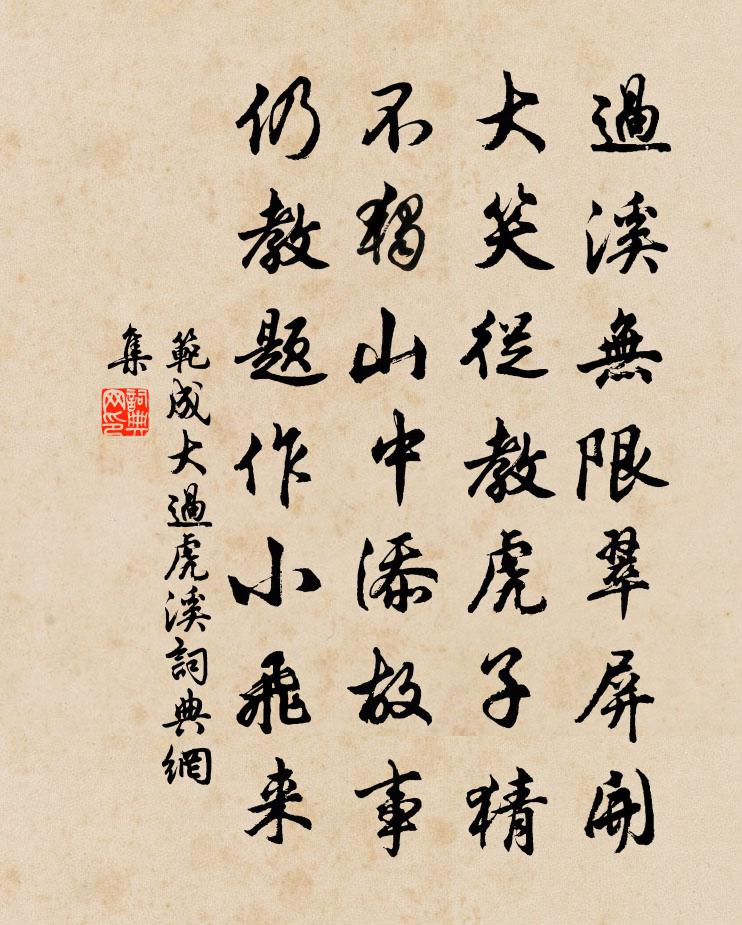 過溪無限翠屏開
大笑從教虎子猜
不獨山中添故事
仍教题作小飛来
範成大過虎溪詞典網
集
詞典
网印